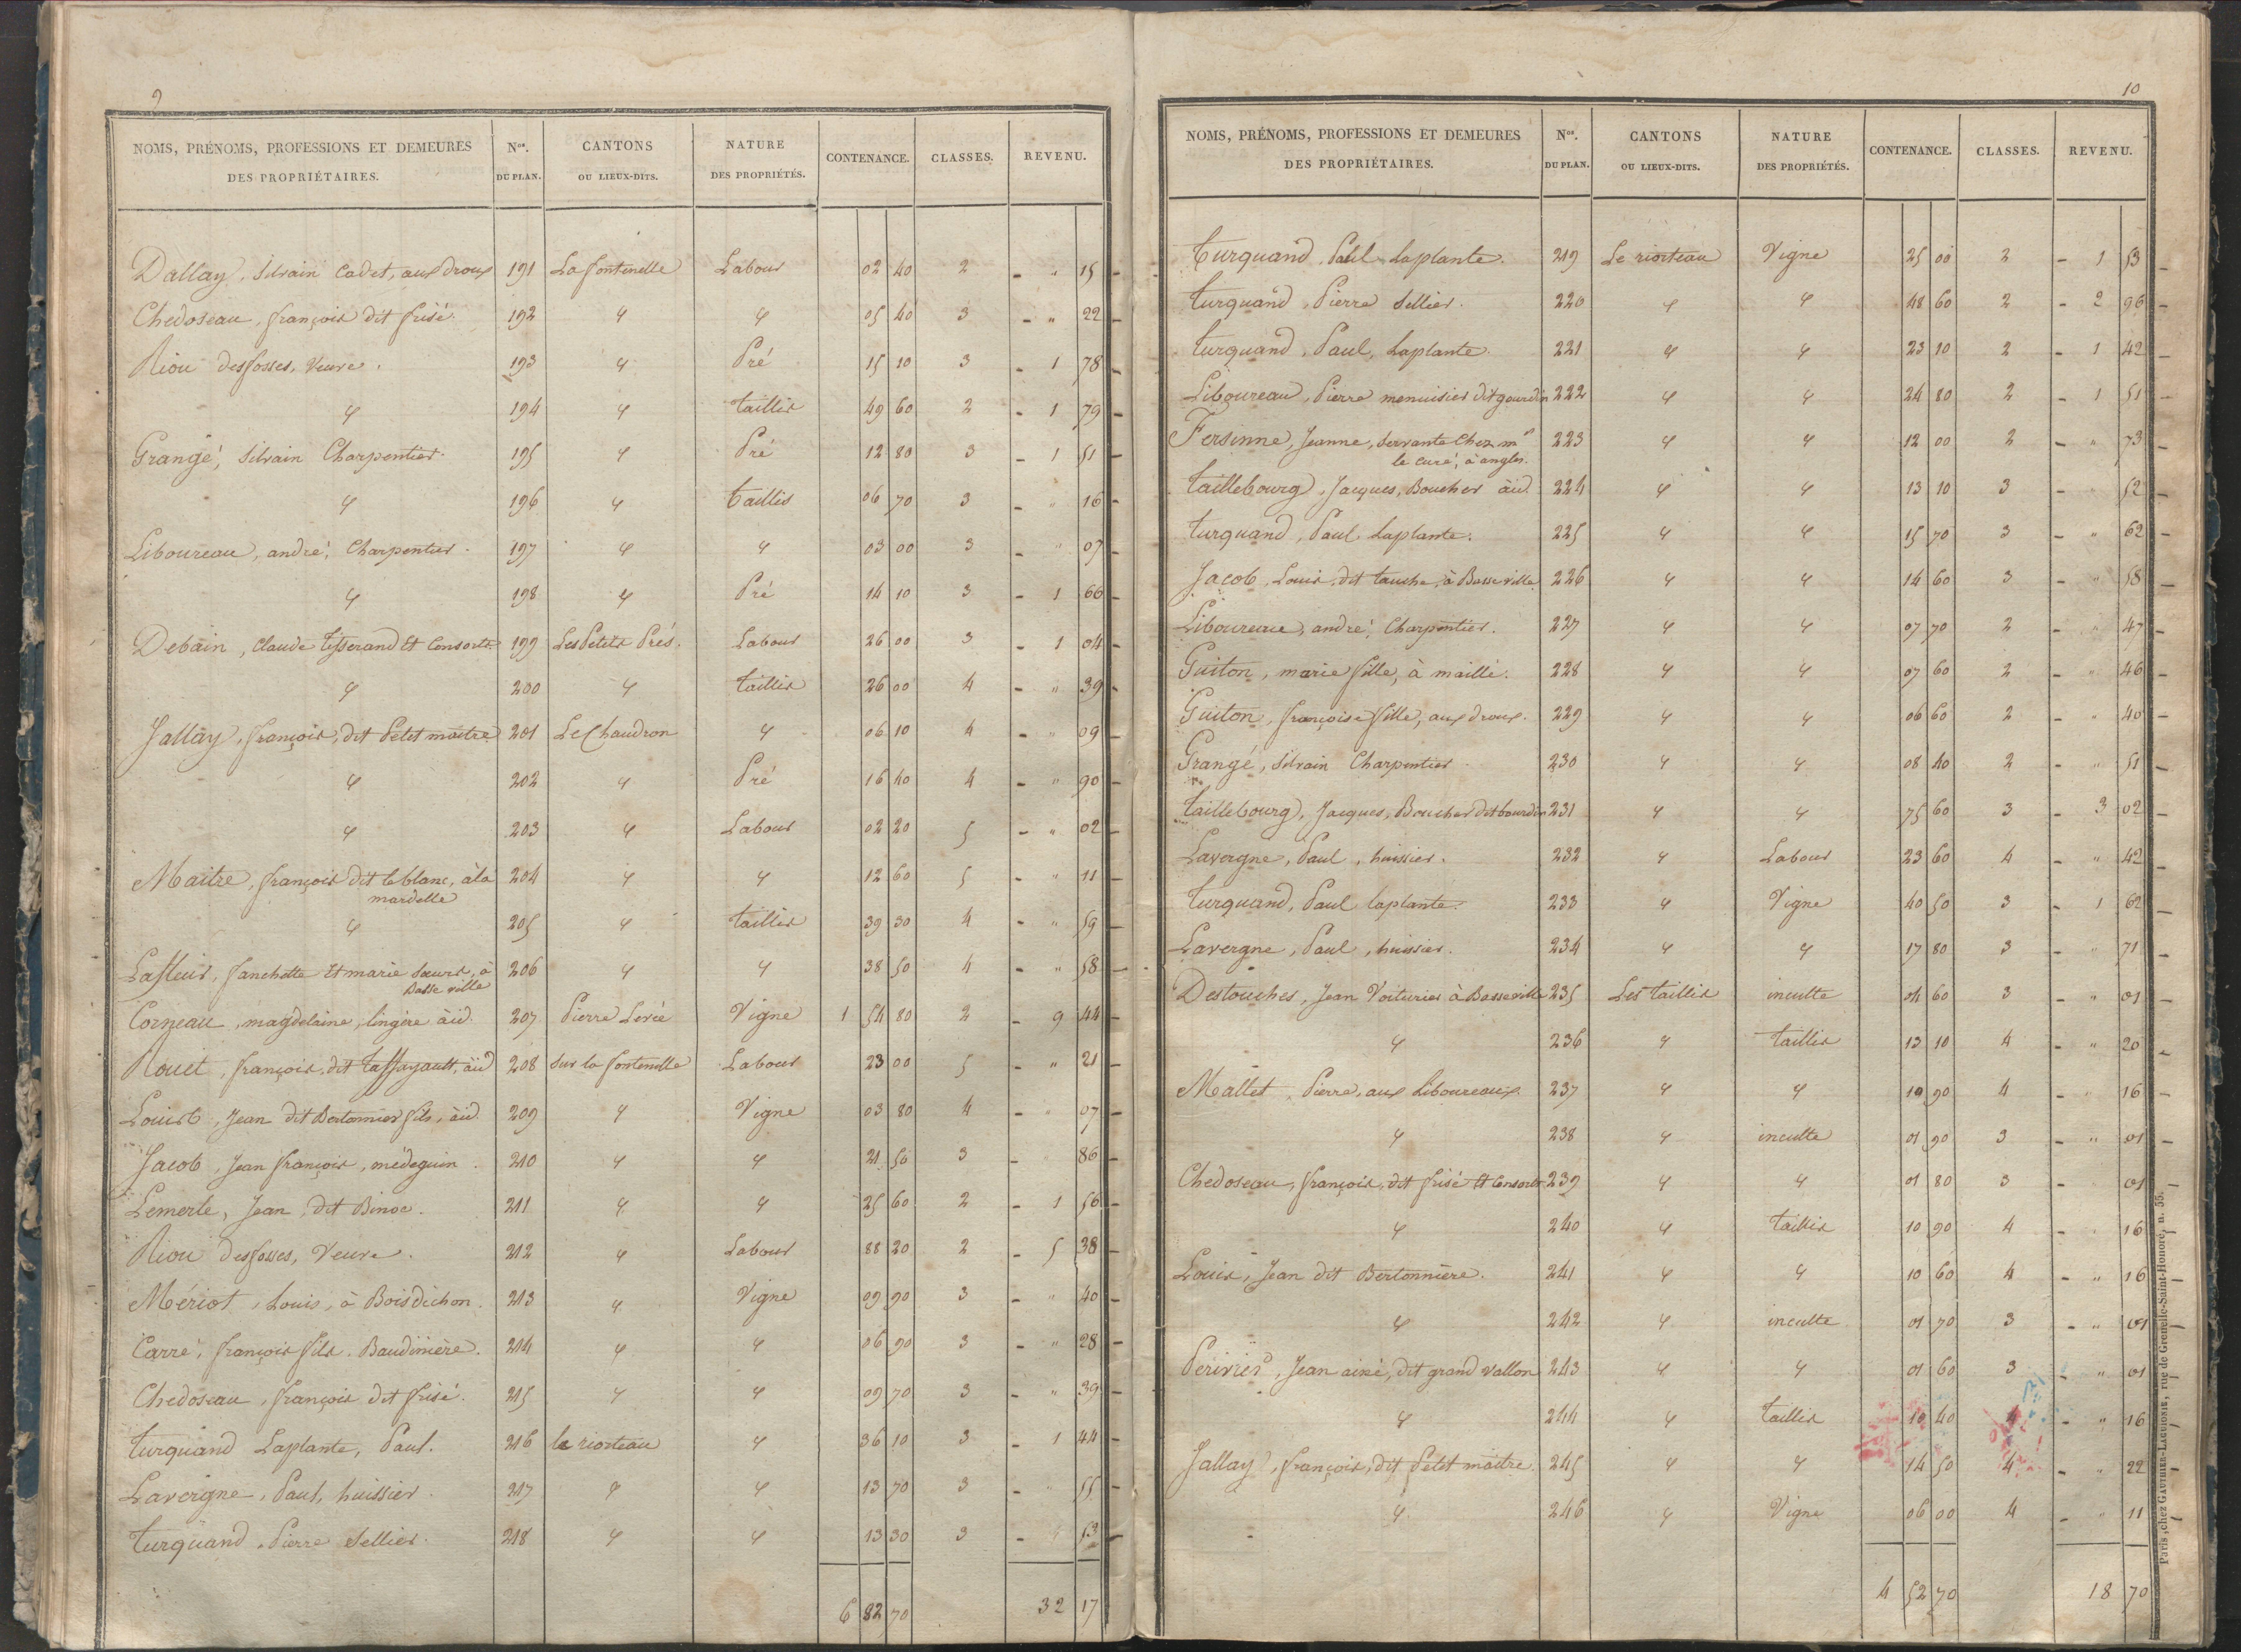 9
NOMS, PRÉNOMS, PROFESSIONS ET DEMEURES DES PROPRIÉTAIRES. Nos. DU PLAN. CANTONS OU LIEUX-DITS. NATURE DES PROPRIÉTÉS. CONTENANCE. CLASSES. REVENU.
Dallay, Silvain Cadet, aux droux 191 La fontenelle Labour 02 40 2 - " 15 -
Chedozeau, françois dit frisé. 192 " " 05 40 3 - " 22 -
Riou desfosses, Veuve. 193 " Pré 15 10 3 - 1 78 -
" 194 " taillis 49 60 2 - 1 79 -
Grangé, Silvain Charpentier 195 " Pré 12 80 3 - 1 51 -
" 196 " taillis 06 70 3 - " 16 -
Liboureau, andré, Charpentier. 197 " " 03 00 3 - " 07 -
" 198 " Pré 14 10 3 - 1 66 -
Debain, Claude tisserand et Consorts 199 Les Petits Prés. Labour 26 00 3 - 1 04 -
" 200 " taillis 26 00 4 - " 39 -
Jallay, françois, dit Petit maitre 201 Le Chaudron " 06 10 4 - " 09 -
" 202 " Pré 16 40 4 - " 90 -
" 203 " Labour 02 20 5 - " 02 -
Maitre, françois dit le blanc, à la mardelle 204 " " 12 60 5 - " 11 -
" 205 " taillis 39 30 4 - " 59 -
Lafleur, fanchette et marie sœurs, à Basse ville 206 " " 38 50 4 - " 58 -
Corneau, magdelaine, lingère àid. 207 Pierre Levée Vigne 1 54 80 2 - 9 44 -
Rouet, françois, dit taffayault, àid 208 sur la fontenelle Labour 23 00 5 - " 21 -
Louis, Jean dit Bertonnier fils, àid 209 " Vigne 03 80 4 - " 07 -
Jacob, Jean françois, médeguin. 210 " " 21 50 3 - 86
Lemerle, Jean, dit Binoc. 211 " " 25 60 2 - 1 56 -
Riou desfosses, Veuve. 212 " Labour 88 20 2 - 5 38 -
Mériot, Louis, à Bois dichon. 213 " Vigne 09 90 3 - " 40 -
Carré, françois fils. Baudinière. 214 " " 06 90 3 - " 28 -
Chedozeau, françois dit frisé. 215 " " 09 70 3 - " 39 -
turquand Laplante, Paul. 216 le riorteau " 36 10 3 - 1 44 -
Lavergne, Paul, huissier. 217 " " 13 70 3 - " 55 -
turquand, Pierre Sellier. 218 " " 13 30 3 - " 53 -
6 82 70 32 17
10
NOMS, PRÉNOMS, PROFESSIONS ET DEMEURES DES PROPRIÉTAIRES. Nos. DU PLAN. CANTONS OU LIEUX-DITS. NATURE DES PROPRIÉTÉS. CONTENANCE. CLASSES. REVENU.
turquand, Paul Laplante. 219 Le riorteau Vigne 25 00 2 - 1 53 -
turquand, Pierre Sellier. 220 " " 48 60 2 - 2 96 -
turquand, Paul, Laplante. 221 " " 23 10 2 - 1 42 -
Liboureau, Pierre menuisier dit gourdin 222 " " 24 80 2 - 1 51 -
Fersinne, Jeanne, servante Chez mr le curé, à angles. 223 " " 12 00 2 - " 73 -
taillebourg, Jacques, Boucher àid. 224 " " 13 10 3 - " 52 -
turquand, Paul Laplante. 225 " " 15 70 3 - " 62 -
Jacob, Louis, dit tauche, à Basse ville 226 " " 14 60 3 - " 58 -
Liboureau, andré, Charpentier. 227 " " 07 70 2 - " 47 -
Guiton, marie fille, à maillé. 228 " " 07 60 2 - " 46 -
Guiton, françoise fille, aux droux. 229 " " 06 60 2 - " 40 -
Grangé, Silvain Charpentier 230 " " 08 40 2 - " 51 -
taillebourg, Jacques, Boucher dit bourdin 231 " " 75 60 3 - 3 02 -
Lavergne, Paul, huissier. 232 " Labour 23 60 4 - " 42 -
turquand, Paul laplante. 233 " Vigne 40 50 3 - 1 62 -
Lavergne, Paul, huissier. 234 " " 17 80 3 - " 71 -
Destouches, Jean Voiturier à Basse ville 235 Les taillis inculte 01 60 3 - " 01 -
" 236 " taillis 13 10 4 - " 20 -
Mallet, Pierre, aux Liboureaux. 237 " " 10 90 4 - " 16 -
" 238 " inculte 01 90 3 - " 01 -
Chedozeau, françois, dit frisé et Consorts 239 " " 01 80 3 - " 01 -
" 240 " taillis 10 90 4 - " 16 -
Louis, Jean dit Bertonnière. 241 " " 10 60 4 - " 16 -
" 242 " inculte 01 70 3 - " 01 -
Perivier, Jean ainé, dit grand vallon 243 " " 01 60 3 - " 01 -
" 244 " taillis 10 40 4 - " 16 -
Jallay, françois, dit Petit maitre. 245 " " 14 50 4 - " 22 -
" 246 " Vigne 06 00 4 - " 11 -
4 52 70 18 70
Paris, chez GAUTHIER-LAGUIONIE, rue de Grenelle-Saint-Honoré, n. 55.